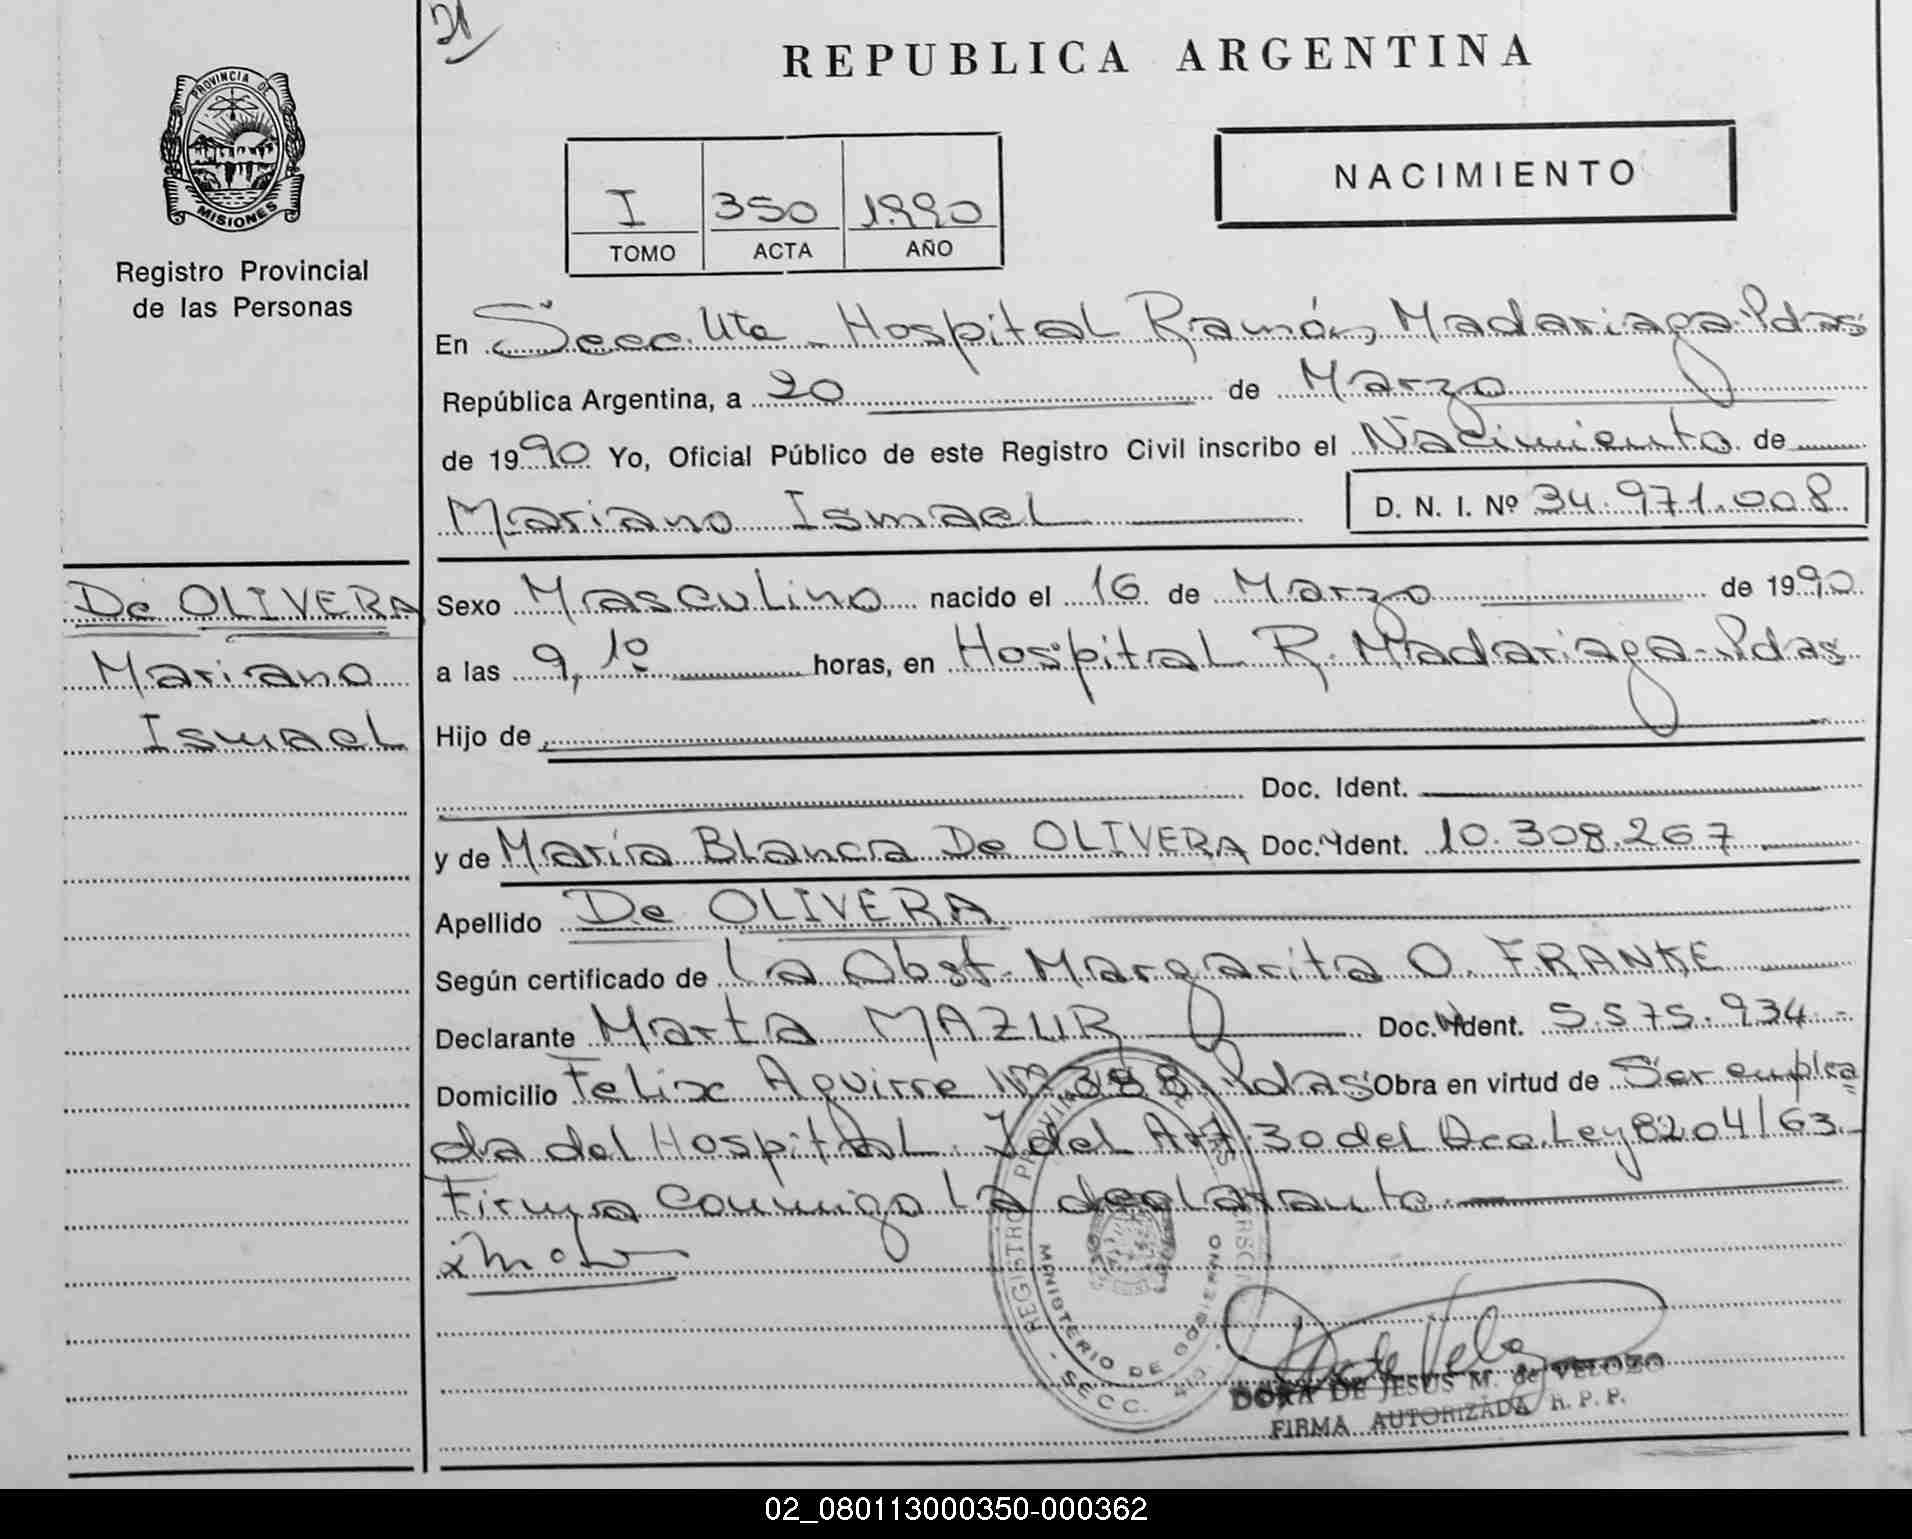 21
REPUBLICA ARGENTINA
PROVINCIA DE
MISIONES
Registro Provincial
de las Personas
I 350 1990
TOMO ACTA AÑO
NACIMIENTO
En Secc. Ute - Hospital Ramón Madariaga - Pdas
República Argentina, a 20 de Marzo
de 1990 Yo, Oficial Público de este Registro Civil inscribo el Nacimiento de
Mariano Ismael D. N. I. Nº 34.971.008
De OLIVERA
Mariano
Ismael
Sexo Masculino nacido el 16 de Marzo de 1990
a las 9,10 horas, en Hospital R. Madariaga - Pdas
Hijo de
Doc. Ident.
y de María Blanca De OLIVERA Doc. Ident. 10.308.267
Apellido De OLIVERA
Según certificado de la Obst. Margarita O. FRANKE
Declarante Marta MAZUR Doc. Ident. 5.575.934 -
Domicilio Felix Aguirre Nº 388 Pdas Obra en virtud de Ser emplea
da del Hospital. Y del Art. 30 del Dco. Ley 8204/63.-
Firma Conmigo la declarante
REGISTRO PROVINCIAL DE LAS PERSONAS
MINISTERIO DE GOBIERNO
SECC.
DORA DE JESUS M. de VELOZO
FIRMA AUTORIZADA R. P. P.
02_080113000350-000362